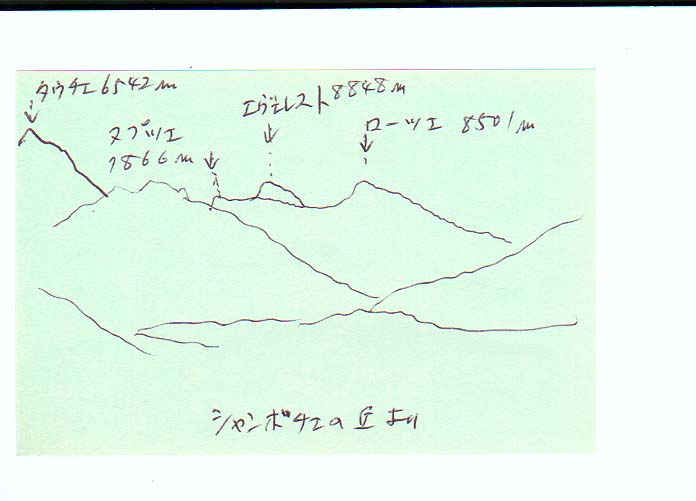 タウチェ 6542m
エヴェレスト 8848m
ヌプツェ
7866m
ローツェ 8501m
シャンボチェの丘より